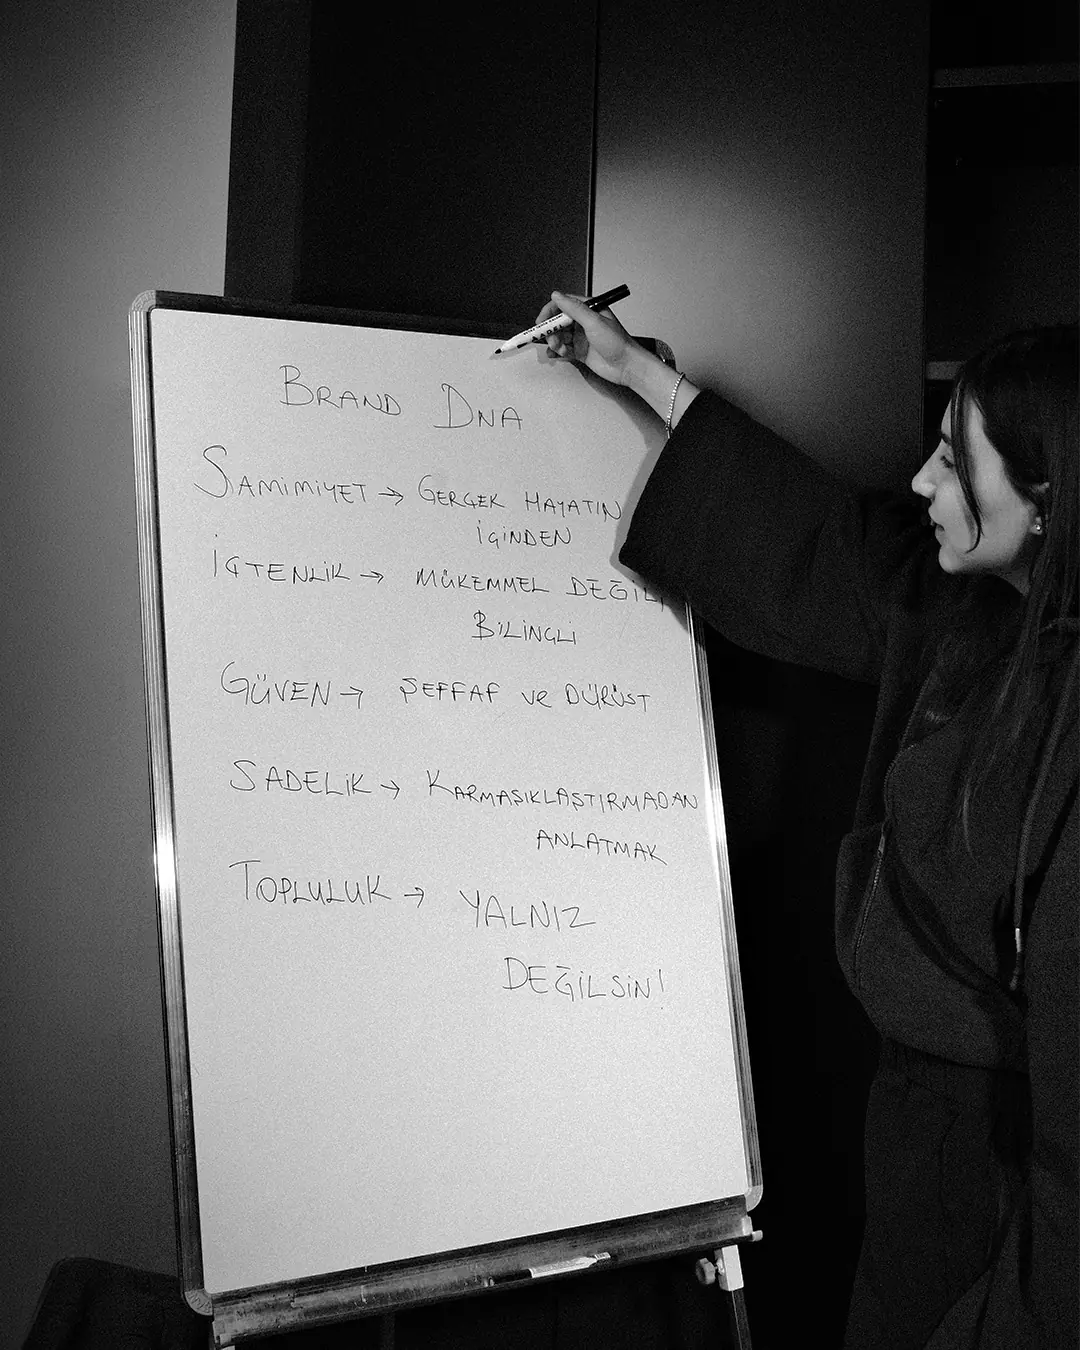 BRAND DNA
SAMİMİYET → GERÇEK HAYATIN
İÇİNDEN
İÇTENLİK → MÜKEMMEL DEĞİL,
BİLİNÇLİ
GÜVEN → ŞEFFAF ve DÜRÜST
SADELİK → KARMAŞIKLAŞTIRMADAN
ANLATMAK
TOPLULUK → YALNIZ
DEĞİLSİN!